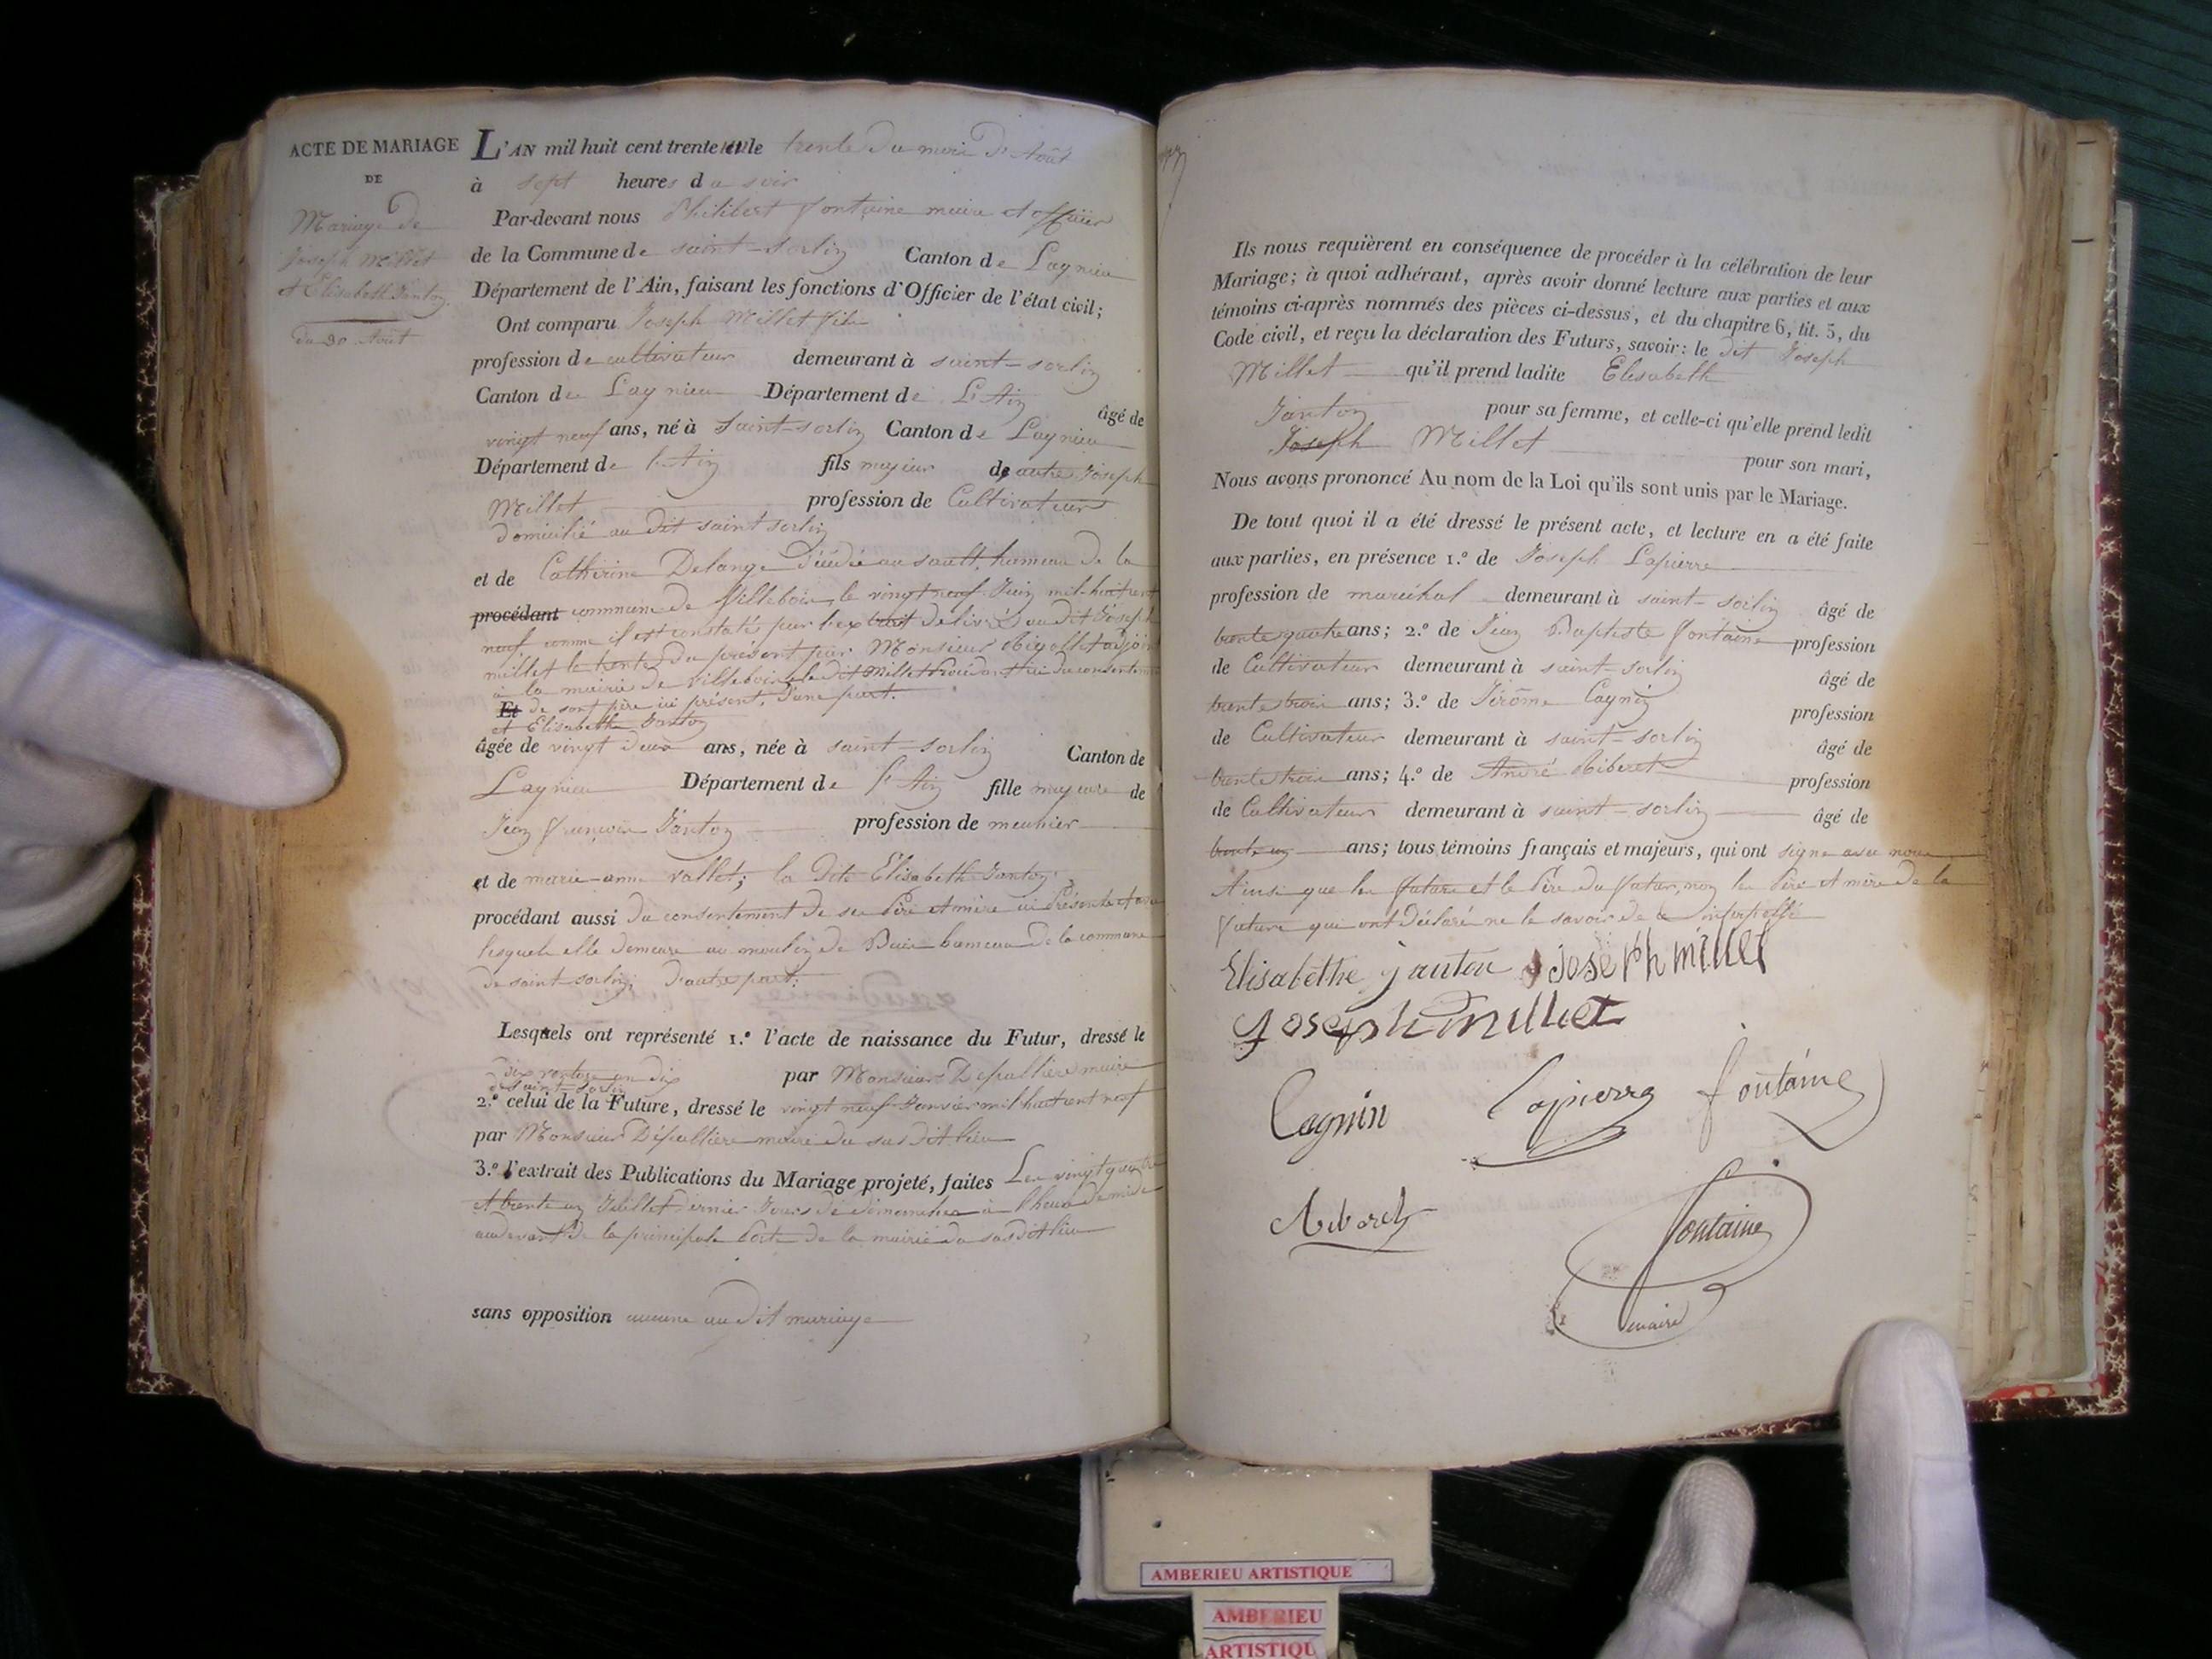 ACTE DE MARIAGE
DE
Mariage de
Joseph Millet
et Elisabeth Janton
du 30 Août
L'AN mil huit cent trente un le trente du mois d'Août
à sept heures du soir
Par-devant nous Philibert fontaine maire et officier
de la Commune de saint-sorlin Canton de Lagnieu
Département de l'Ain, faisant les fonctions d'Officier de l'état civil;
Ont comparu Joseph Millet fils
profession de cultivateur demeurant à saint-sorlin
Canton de Lagnieu Département de L'Ain âgé de
vingt neuf ans, né à Saint-sorlin Canton de Lagnieu
Département de l'Ain fils majeur de autre Joseph
Millet profession de Cultivateur
domicilié au dit saint sorlin
et de Catherine Delange Décédée au sault, hameau de la
procédant commune de Villebois, le vingt neuf Juin mil huit cent
neuf comme il est constaté par l'extrait délivré au dit Joseph
millet le trente du présent par Monsieur Rigollet adjoint
à la mairie de villebois, le dit Millet procédant ici du consentement
Et de sont père ici présent, d'une part.
et Elisabeth Janton
âgée de vingt deux ans, née à saint-sorlin Canton de
Lagnieu Département de l'Ain fille majeure de
Jean françois Janton profession de meunier
et de marie-anne vallet; la Dite Elisabeth Janton
procédant aussi du consentement de ses Père et mère ici Présents et avec
lesquels elle demeure au moulin de Buis hameau de la commune
de saint-sorlin, D'autre part;
Lesquels ont représenté 1.º l'acte de naissance du Futur, dressé le
dix ventose an dix par Monsieur Depallière maire
de saint-sorlin
2.º celui de la Future, dressé le vingt neuf Janvier mil huit cent neuf
par Monsieur Depallière maire du sus dit lieu
3.º l'extrait des Publications du Mariage projeté, faites Les vingt quatre
et trente un Juillet Dernier Jours de dimanches à l'heure de midi
au devant de la principale Porte de la mairie du sus dit lieu
sans opposition aucune au dit mariage
Ils nous requièrent en conséquence de procéder à la célébration de leur
Mariage; à quoi adhérant, après avoir donné lecture aux parties et aux
témoins ci-après nommés des pièces ci-dessus, et du chapitre 6, tit. 5, du
Code civil, et reçu la déclaration des Futurs, savoir: le dit Joseph
Millet qu'il prend ladite Elisabeth
Janton pour sa femme, et celle-ci qu'elle prend ledit
Joseph Millet pour son mari,
Nous avons prononcé Au nom de la Loi qu'ils sont unis par le Mariage.
De tout quoi il a été dressé le présent acte, et lecture en a été faite
aux parties, en présence 1.º de Joseph Lapierre
profession de maréchal demeurant à saint-sorlin âgé de
trente quatre ans; 2.º de Jean Baptiste fontaine profession
de Cultivateur demeurant à saint-sorlin âgé de
trente trois ans; 3.º de Jérôme Cagnin profession
de Cultivateur demeurant à saint-sorlin âgé de
trente trois ans; 4.º de André Riberet profession
de Cultivateur demeurant à saint-sorlin âgé de
trente un ans; tous témoins français et majeurs, qui ont signé avec nous
Ainsi que les future et le Père du futur, non les Père et mère de la
future qui ont Déclaré ne le savoir de ce interpellé
Elisabethe janton joseph millet
Joseph millet
Cagnin Lapierre fontaine
Riberet
fontaine
maire
AMBERIEU ARTISTIQUE
AMBERIEU
ARTISTIQU